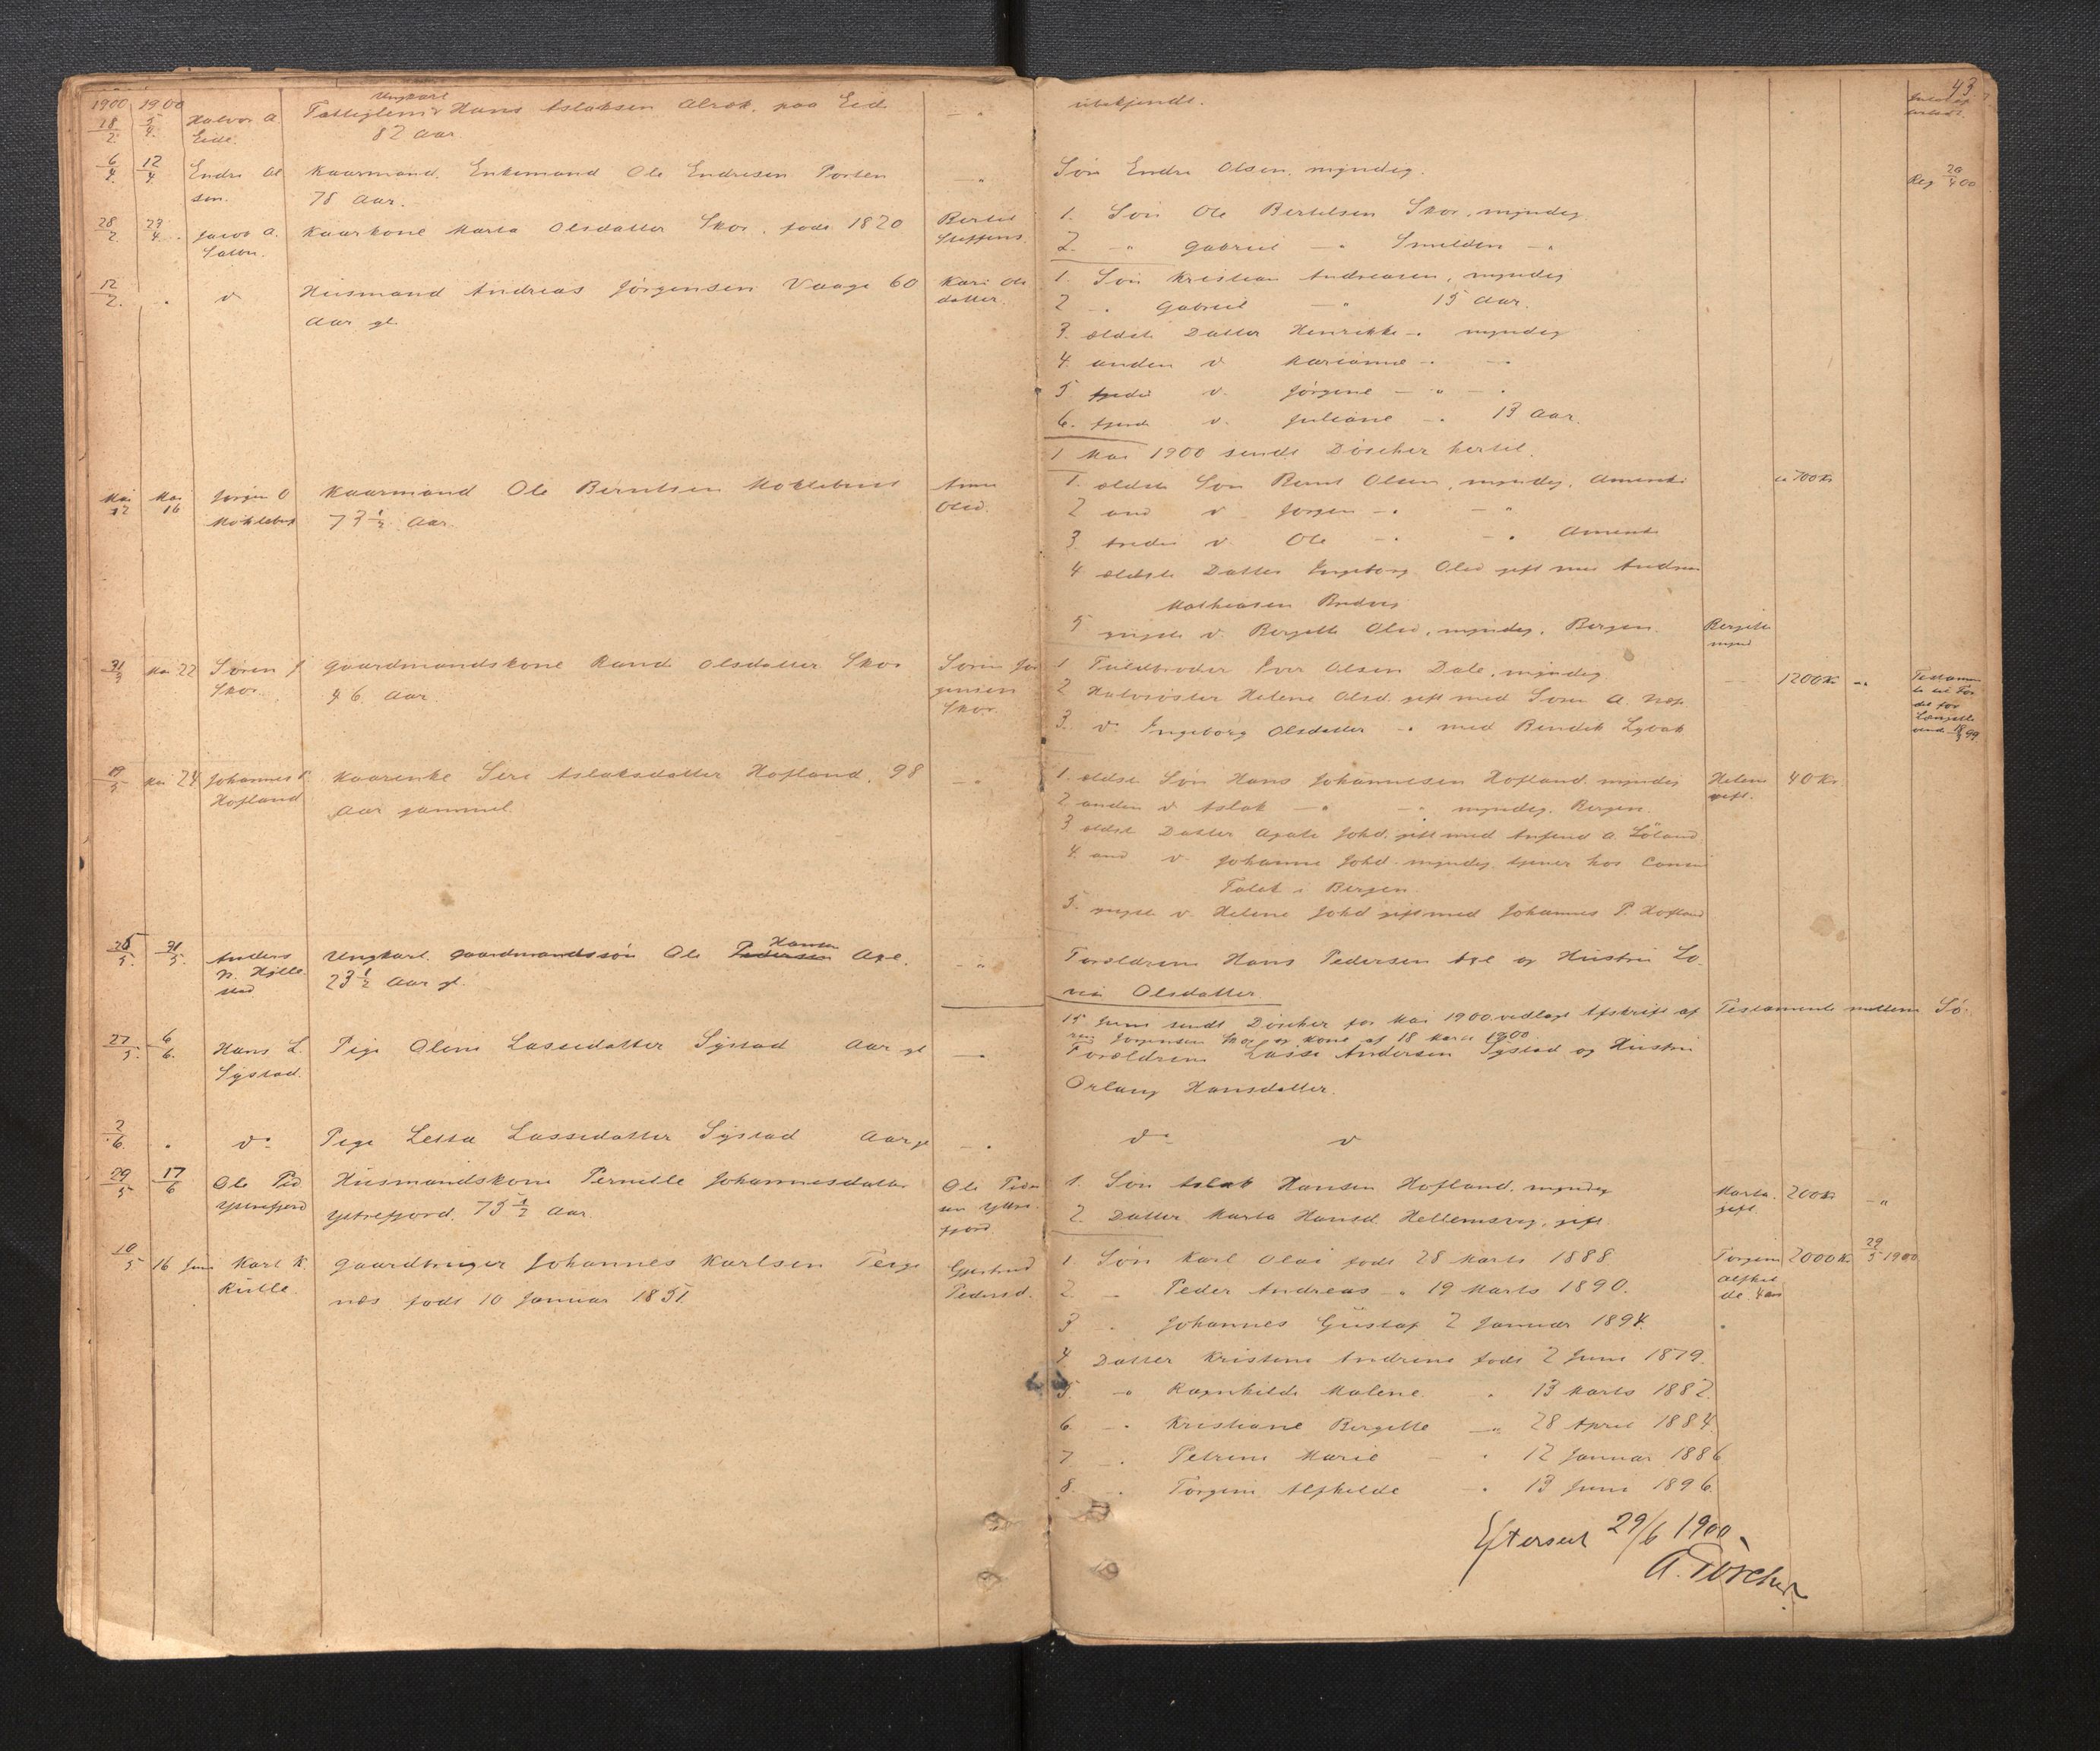 1900 1900
18/2 5/4 Halvor A Tattiglem Ungkarl Hans Aslaksen Alrek. paa Eide
Eide. 82 Aar.
6/4 12/4 Endre Ol Kaarmand. Enkemand Ole Endresen Porten
sen. 78 Aar.
28/2 27/4 Jacob A. Kaarkone Marta Olsdatter Skor. født 1820 Bertel
Steffens.
12/2 " d Husmand Andreas Jørgensen Vaage 60 Kari Ols
Aar gl. datter.
Mai 12 Mai 16 Jørgen O Kaarmand Ole Berntsen Moklebust Anna
Moklebust 73 1/2 Aar. Olsd.
31/3 Mai 22 Søren J Gaardmandskone Rand Olsdatter Skor Søren Jør
Skor. 46 Aar. gensen
Skor.
19/5 Mai 24 Johannes P. Kaarenke Siri Aslaksdatter Hofland. 98
Hofland Aar gammel
25/5 31/5 Anders Ungkarl. Gaardmandssøn Ole Pedersen Hansen Age.
N. Hjelle 23 1/2 Aar gl.
stad
27/5 6/6 Hans L. Pige Oline Lassedatter Systad Aar gl
Systad.
2/6 " d Pige Letta Lassedatter Systad Aar gl
29/5 17/6 Ole Ped Husmandskone Pernille Johannesdatter Ole Peder
Ytrefjord Ytrefjord. 75 1/2 Aar. sen Ytre
fjord
10/5 16 Juni Karl K. Gaardbruger Johannes Karlsen Teige Gjertrud
Rulle næs født 10 Januar 1851. Pedersd.
43
ubekjendt.
Søn Endre Olsen, myndig. Reg 20/4 00
1. Søn Ole Bertelsen Skor, myndig
2. - " Gabriel - " Smelden - "
1. Søn Kristian Andreasen, myndig
2 - " Gabriel - " 15 Aar.
3. ældste Datter Henrikke - " myndig
4. anden d Karianne - " - "
5 tredie d. Jørgine - " - "
6. fjerde d. Juliane - " 13 Aar.
1 Mai 1900 sendt Døscher hertil.
1. ældste Søn Bernt Olsen, myndig, Amerika ca 700 Kr
2 and d Jørgen - " - "
3. tredie d. Ole - " - " Amerika
4 ældste Datter Ingeborg Olsd gift med Andreas
Mathiasen
5 yngste d. Bergitte Olsd, myndig, Bergen. Bergitte
mynd
1 Fuldbroder Iver Olsen Dale, myndig 1200 Kr - " Testamen
2 Halvsøster Helene Olsd. gift med Søren A. Næs
3. d. Ingeborg Olsdatter - " med Bendik Lyvak
1. ældste Søn Hans Johannesen Hofland myndig Helene 40 Kr
2 anden d Aslak - " - " myndig. Bergen. gift.
3. ældste Datter Agate Johd. gift med Anfind A. Løland
4. and d. Johanne Johd. myndig tjener hos
i Bergen.
5. yngste d. Helene Johd gift med Johannes P. Hofland
Forældrene Hans Pedersen Age og Hustru Lo
vise Olsdatter.
15 Juni sendt Døscher for Mai 1900. vedlagt Afskrift af Testamente mellem Sø-
ren Jørgensen Skor og Kone af 18 Marts 1900
Forældrene Lasse Andersen Systad og Hustru
Orlaug Hansdatter.
d d
1. Søn Aslak Hansen Hofland. myndig Marta 200 Kr - "
2. Datter Marta Hansd. Hellemsvig, gift gift
1 Søn Karl Olai født 28 Marts 1888 Torgine 2000 Kr 29/5 1900
2 - Peder Andreas - " 19 Marts 1890. Alfhil
de 4 aar
3 - " Johannes Gustaf 2 Januar 1894.
4 Datter Kristine Andrine født 2 Juni 1879.
5 - " Ragnhilde Malene " 13 Marts 1882.
6 - " Kristiane Bergitte - " 28 April 1884
7 - " Petrine Marie - " 12 Januar 1886
8. - " Torgine Alfhilde - " 13 Juni 1896.
Efterseet 29/6 1900
A. Døscher